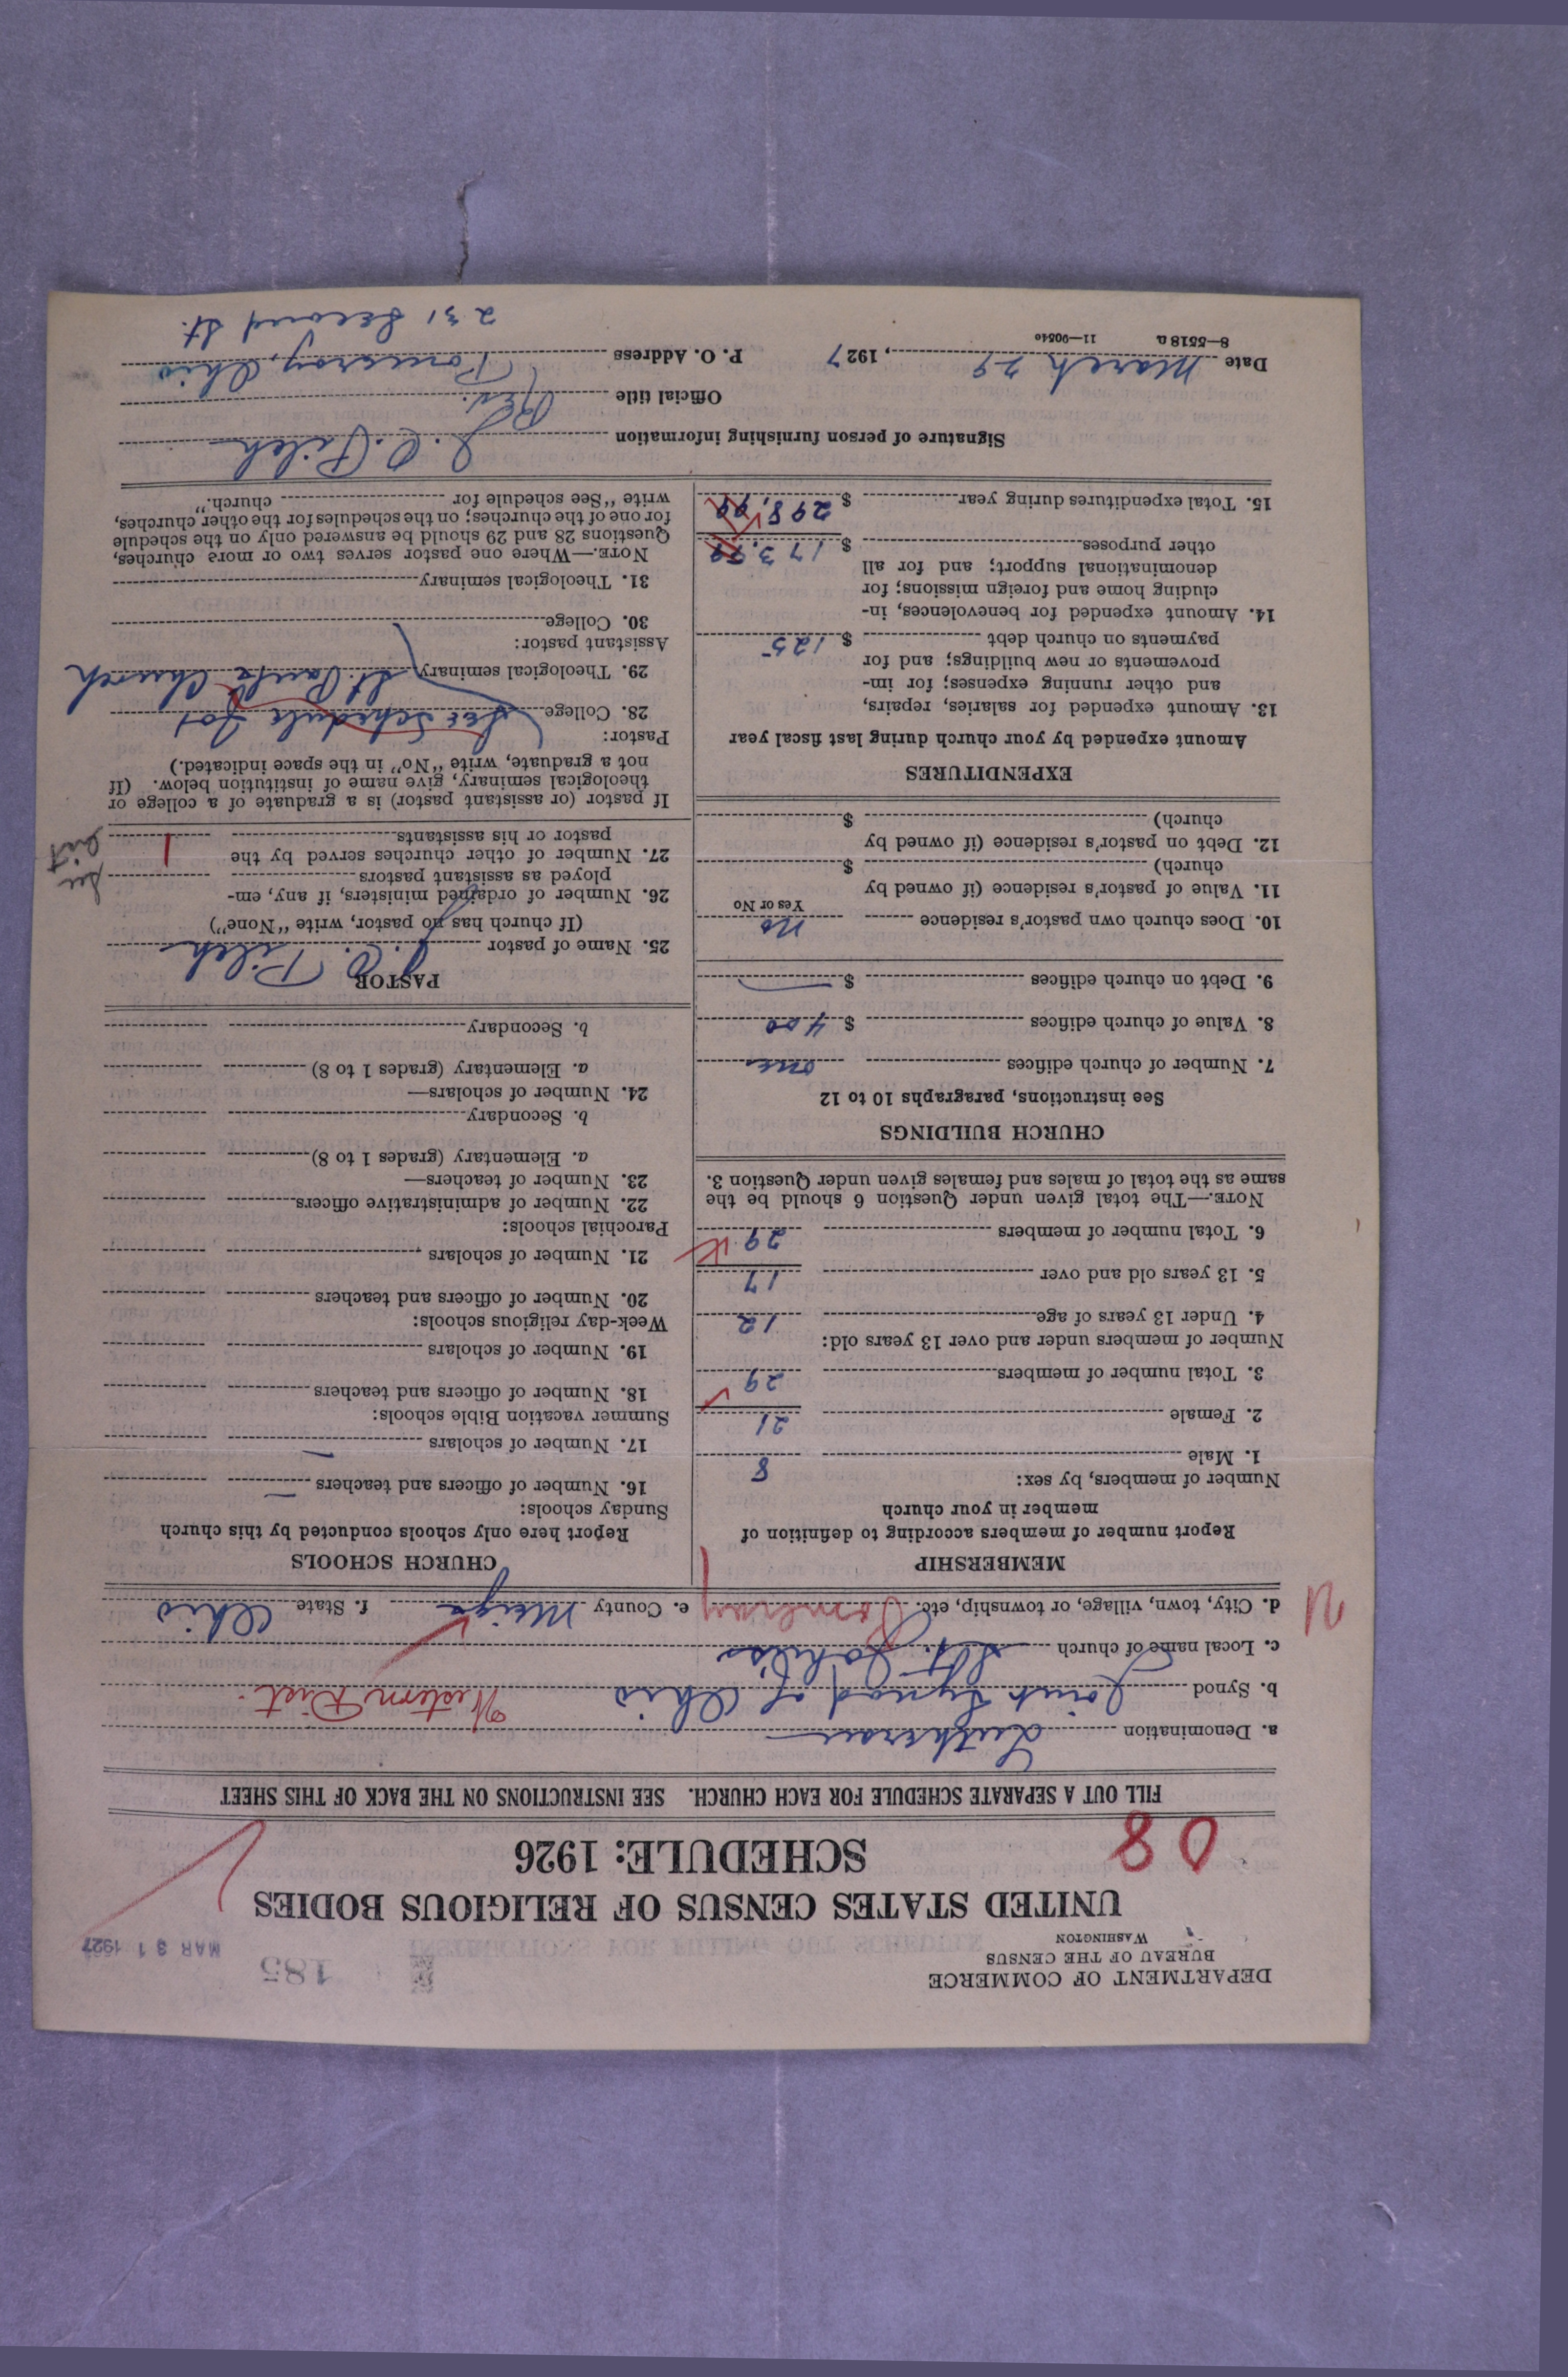 DEPARTMENT OF COMMERCE
BUREAU OF THE CENSUS
WASHINGTON
185
MAR 31 1927
UNITED STATES CENSUS OF RELIGIOUS BODIES
08
SCHEDULE: 1926
FILL OUT A SEPARATE SCHEDULE FOR EACH CHURCH. SEE INSTRUCTIONS ON THE BACK OF THIS SHEET
a. Denomination Lutheran
b. Synod Joint Synod of Ohio Western Dist.
c. Local name of church St. John's
d. City, town, village, or township, etc. Pomeroy e. County Meigs f. State Ohio
MEMBERSHIP
Report number of members according to definition of
member in your church
Number of members, by sex:
1. Male 8
2. Female 21
3. Total number of members 29
Number of members under and over 13 years old:
4. Under 13 years of age 12
5. 13 years old and over 17
6. Total number of members 29
NOTE.—The total given under Question 6 should be the
same as the total of males and females given under Question 3.
CHURCH BUILDINGS
See instructions, paragraphs 10 to 12
7. Number of church edifices one
8. Value of church edifices $ 400
9. Debt on church edifices $ —
10. Does church own pastor's residence No
Yes or No
11. Value of pastor's residence (if owned by
church) $
12. Debt on pastor's residence (if owned by
church) $
EXPENDITURES
Amount expended by your church during last fiscal year
13. Amount expended for salaries, repairs,
and other running expenses; for im-
provements or new buildings; and for
payments on church debt $ 125
14. Amount expended for benevolences, in-
cluding home and foreign missions; for
denominational support; and for all
other purposes $ 173.
15. Total expenditures during year $ 298.
CHURCH SCHOOLS
Report here only schools conducted by this church
Sunday schools:
16. Number of officers and teachers —
17. Number of scholars —
Summer vacation Bible schools:
18. Number of officers and teachers
19. Number of scholars
Week-day religious schools:
20. Number of officers and teachers
21. Number of scholars
Parochial schools:
22. Number of administrative officers
23. Number of teachers—
a. Elementary (grades 1 to 8)
b. Secondary
24. Number of scholars—
a. Elementary (grades 1 to 8)
b. Secondary
PASTOR
25. Name of pastor J. C. Pilch
(If church has no pastor, write "None")
26. Number of ordained ministers, if any, em-
ployed as assistant pastors
27. Number of other churches served by the
pastor or his assistants 1
See
If pastor (or assistant pastor) is a graduate of a college or
theological seminary, give name of institution below. (If
not a graduate, write "No" in the space indicated.)
Pastor:
28. College See Schedule for
29. Theological seminary St. Paul's Church
Assistant pastor:
30. College
31. Theological seminary
NOTE.—Where one pastor serves two or more churches,
Questions 28 and 29 should be answered only on the schedule
for one of the churches; on the schedules for the other churches,
write "See schedule for church."
Signature of person furnishing information J. C. Pilch
Official title Rev.
Date March 29, 1927 P. O. Address Pomeroy, Ohio
8—5518 a 11—9054c
231 Second St.